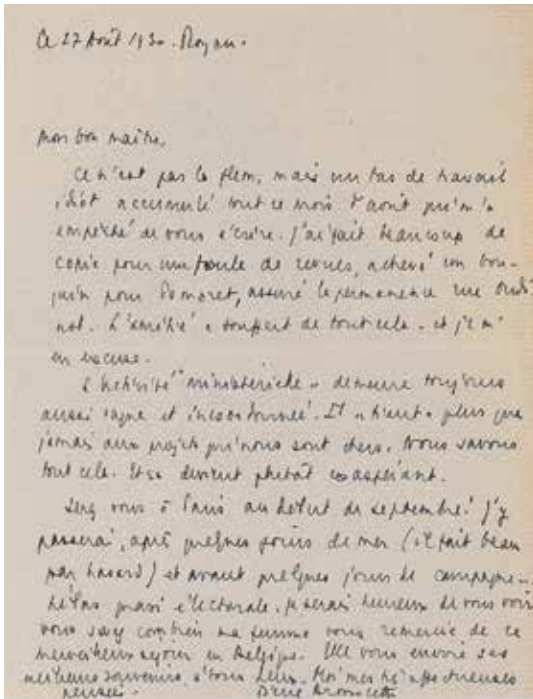 Ce 27 Août 1930. Royan.
Mon bon maître,
Ce n'est pas la flem, mais un tas de travail
idiot accumulé tout ce mois d'août qui m'a
empêché de vous écrire. J'ai fait beaucoup de
copie pour une foule de revues, achevé un bou-
quin pour Pomaret, assuré la permanence rue Oudi
not. L'amitié a souffert de tout cela - et je m'
en excuse.
L'activité "ministérielle" demeure toujours
aussi vague et inconstante. Il "tient" plus que
jamais aux projets qui nous sont chers. Nous savons
tout cela. Et ça devient plutôt exaspérant.
Serez vous à Paris au début de septembre? J'y
passerai, après quelques jours de mer (il fait beau
par hasard) et avant quelques jours de campagne -
hélas quasi électorale. Je serais heureux de vous voir
vous savez combien ma femme vous remercie de ce
merveilleux séjour en Belgique. Elle vous envoie ses
meilleurs souvenirs, à tous deux. Moi mes très affectueuses
pensées.
Pierre Brossolette